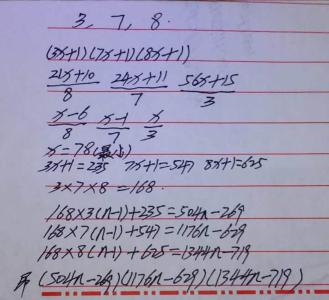 3, 7, 8.
(3x+1)(7x+1)(8x+1)
21x+10/8 24x+11/7 56x+15/3
x-6/8 x-1/7 x/3
x=78(最小)
3x+1=235 7x+1=547 8x+1=625
3×7×8=168.
168×3(n-1)+235=504n-269
168×7(n-1)+547=1176n-629
168×8(n-1)+625=1344n-719
即(504n-269)(1176n-629)(1344n-719)